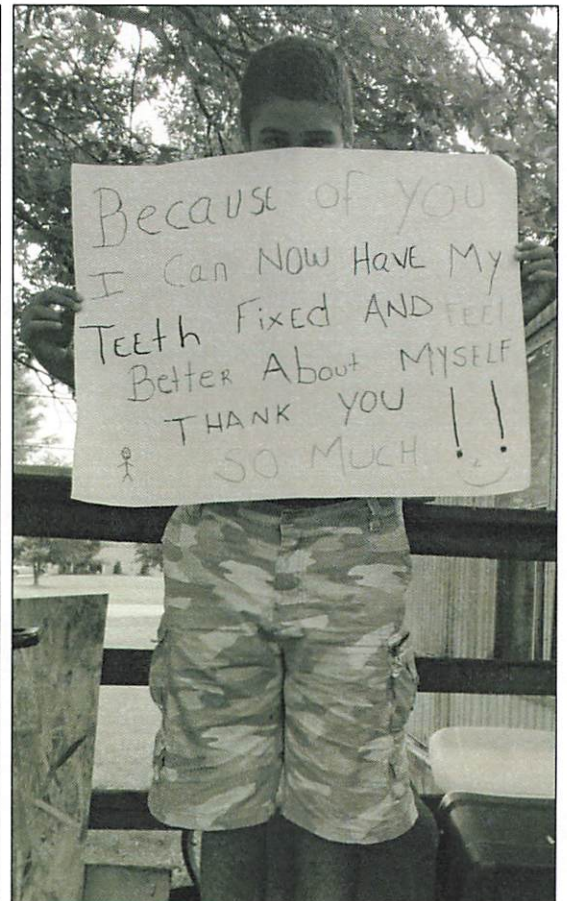 Because of you
I Can NOW HavE My
TEEth Fixed AND FEEl
BetteR About MYSELF
THANK YOU !!
SO MUCH